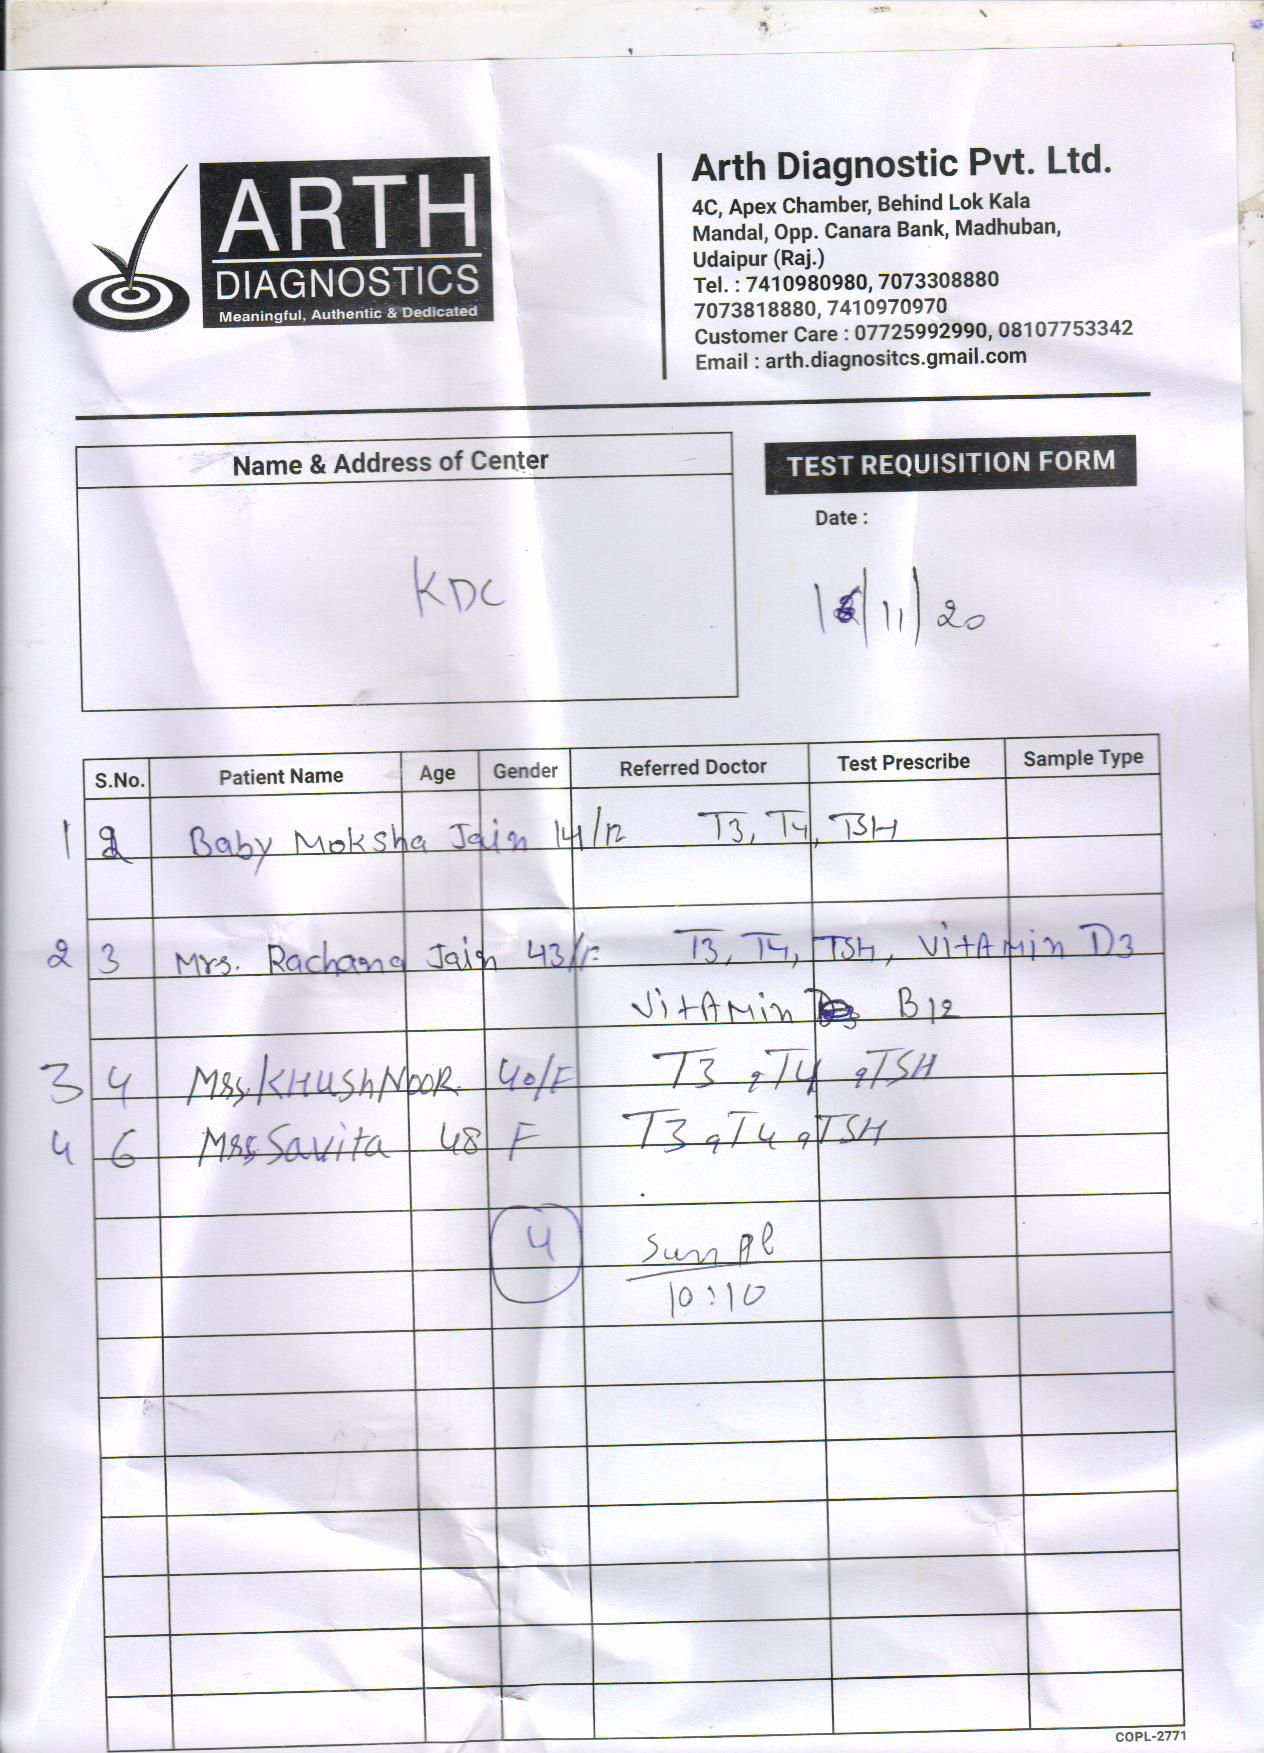 ARTH
DIAGNOSTICS
Meaningful, Authentic & Dedicated
Arth Diagnostic Pvt. Ltd.
4C, Apex Chamber, Behind Lok Kala
Mandal, Opp. Canara Bank, Madhuban,
Udaipur (Raj.)
Tel. : 7410980980, 7073308880
7073818880, 7410970970
Customer Care : 07725992990, 08107753342
Email : arth.diagnositcs.gmail.com
Name & Address of Center
KDC
TEST REQUISITION FORM
Date :
/11/20
S.No. Patient Name Age Gender Referred Doctor Test Prescribe Sample Type
1 Baby Moksha Jain 14/12 T3, T4, TSH
2 3 Mrs. Rachana Jain 43/F T3, T4, TSH, VitAmin D3
VitAmin B12
3 4 Mrs. KHUShNOOR 40/F T3, T4, TSH
4 6 Mrs. Savita 48 F T3, T4, TSH
4
10:10
COPL-2771